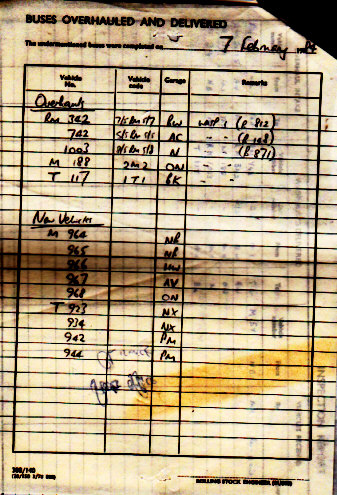 BUSES OVERHAULED AND DELIVERED
The undermentioned buses were completed on 7 February 1984
Vehicle No. Vehicle code Garage Remarks
Overhauls
RM 342 7/5 RM 5/7 RW WASP 1 (R 812)
742 5/5 RM 5/5 AC " " (R 168)
1003 8/5 RM 5/8 N " " (R 871)
M 188 2M2 ON " "
T 117 1T1 BK " "
New Vehicles
M 964 NR
965 NR
966
967 AV
968 ON
T 923 NX
934 NX
942 PM
944 PM
ROLLING STOCK ENGINEER (BUSES)